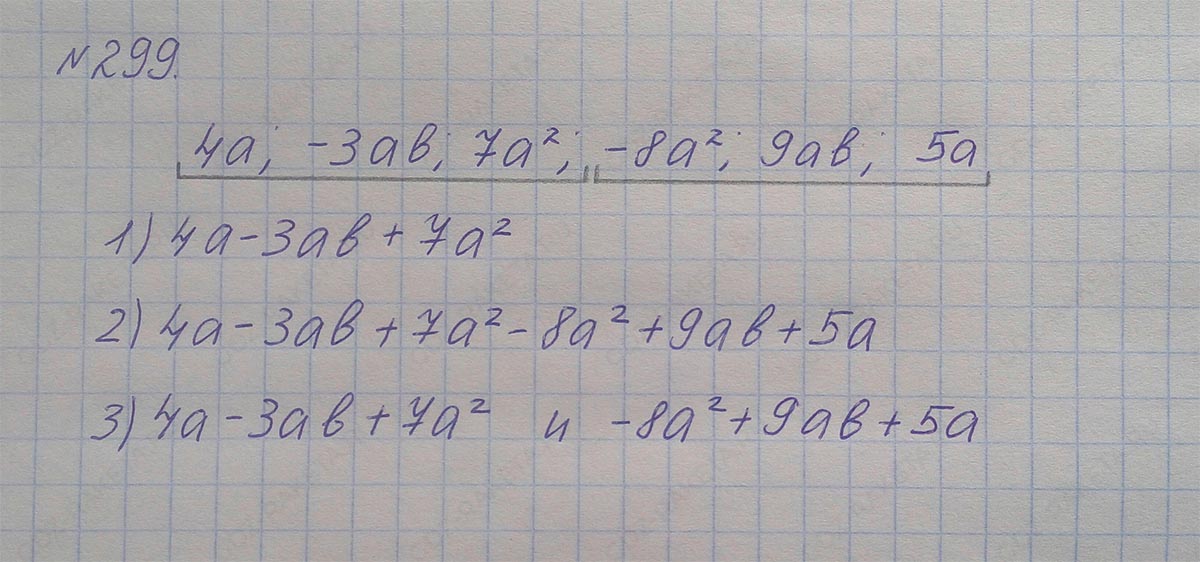 №299.
4a; -3ab; 7a²; -8a²; 9ab; 5a
1) 4a-3ab+7a²
2) 4a-3ab+7a²-8a²+9ab+5a
3) 4a-3ab+7a² и -8a²+9ab+5a